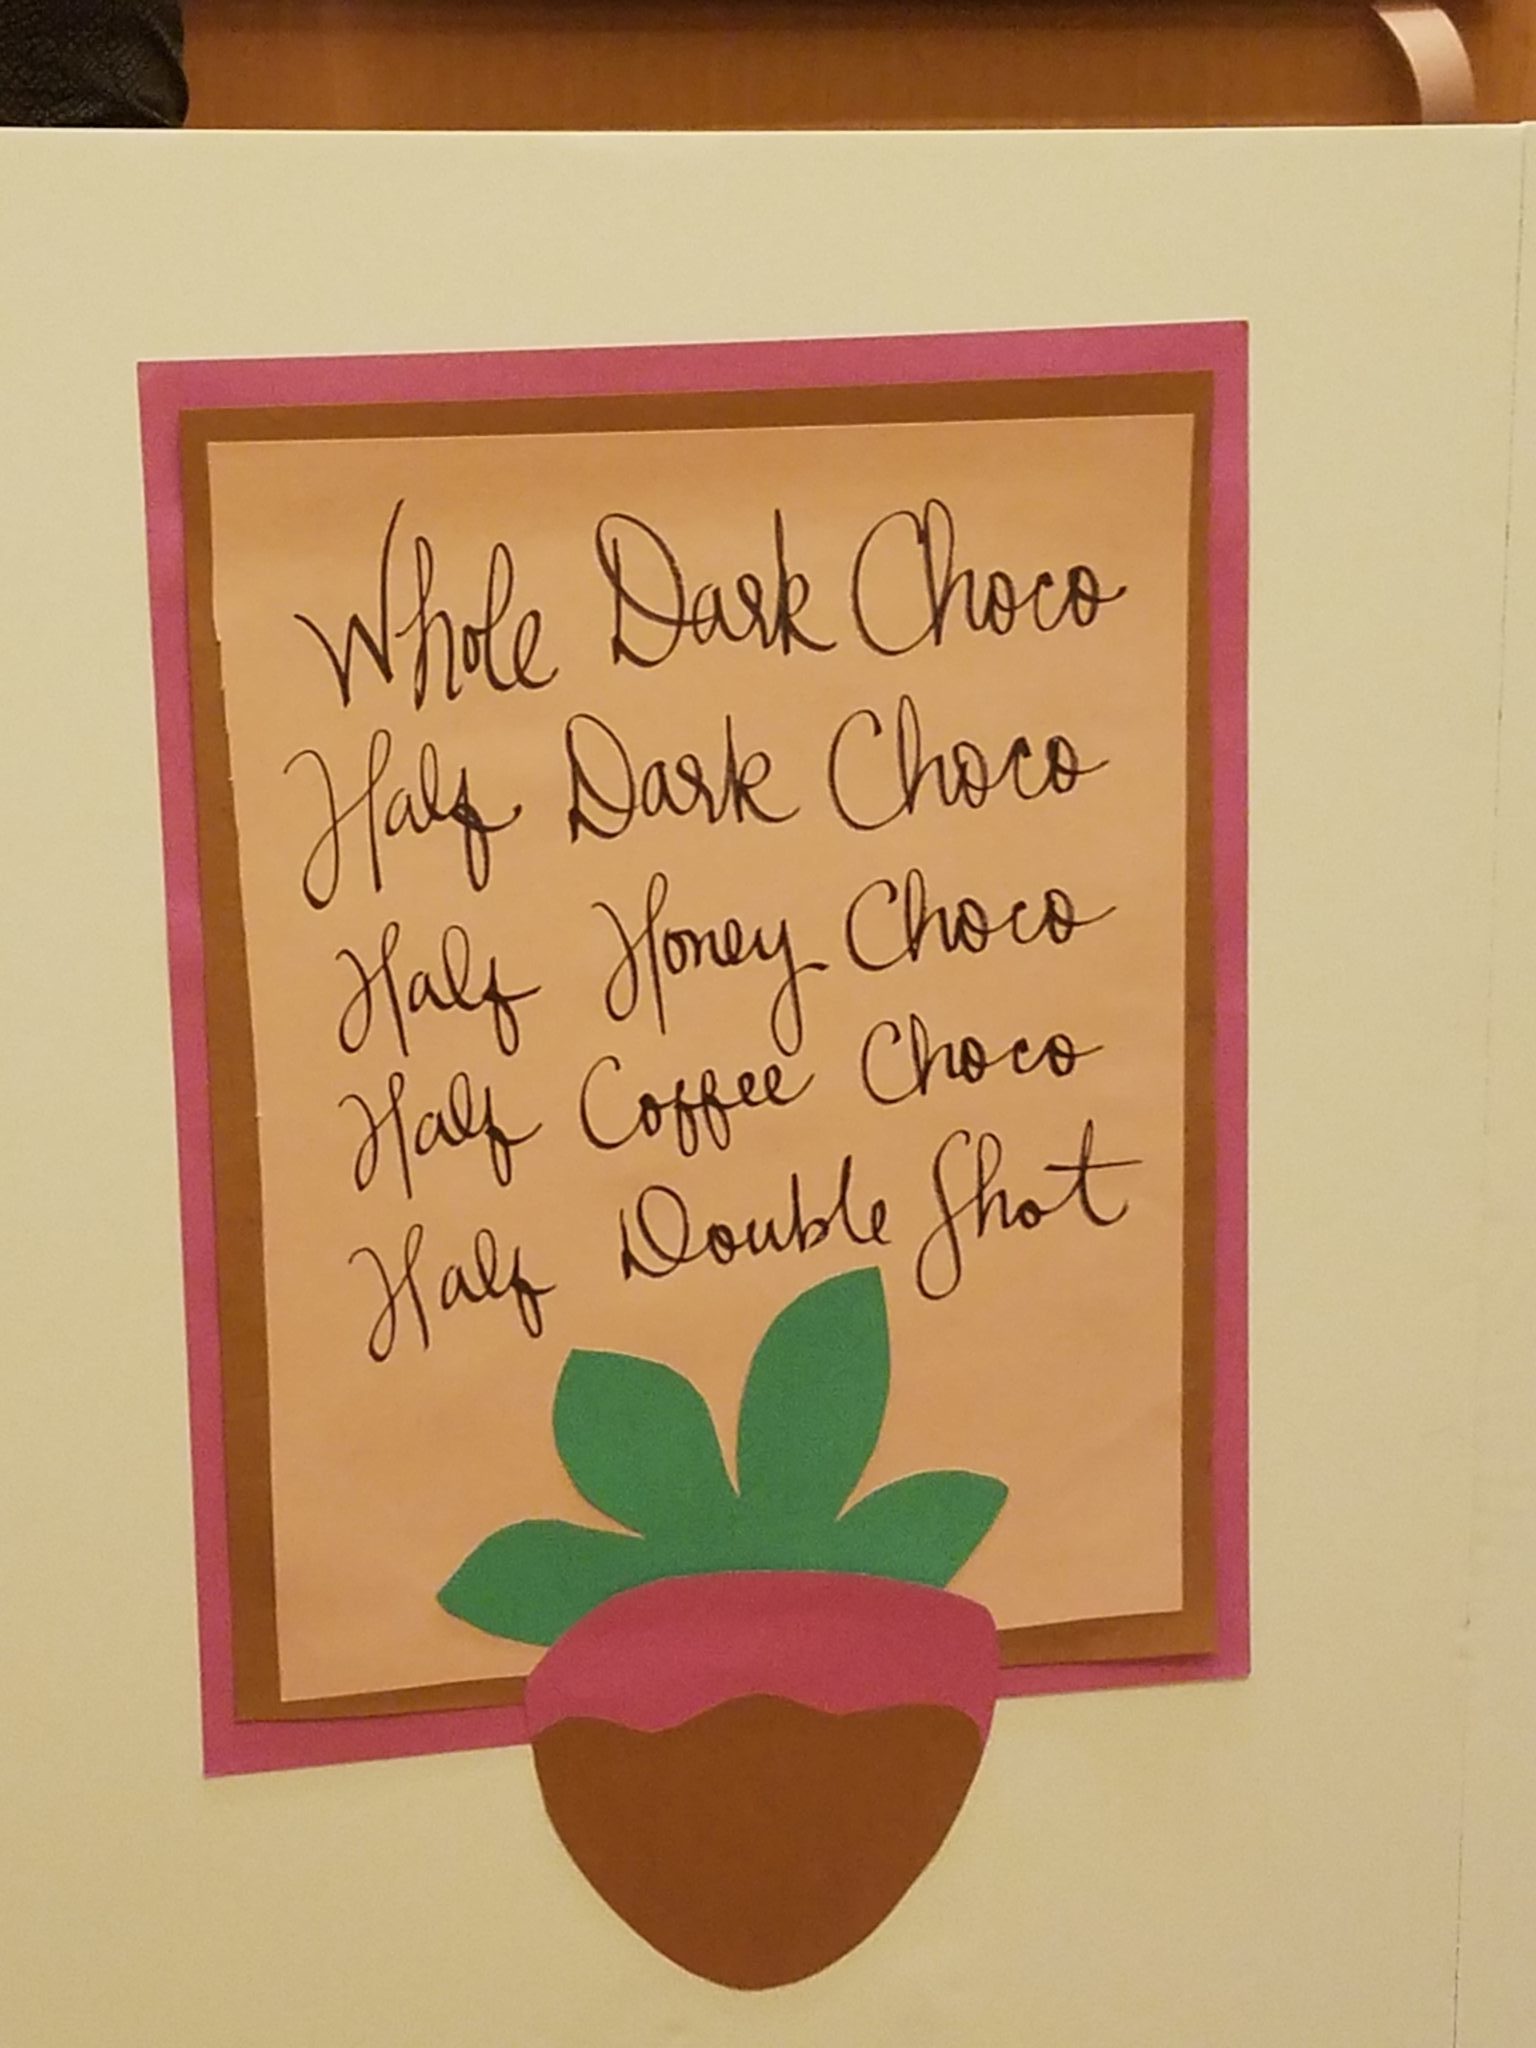 Whole Dark Choco
Half Dark Choco
Half Honey Choco
Half Coffee Choco
Half Double Shot